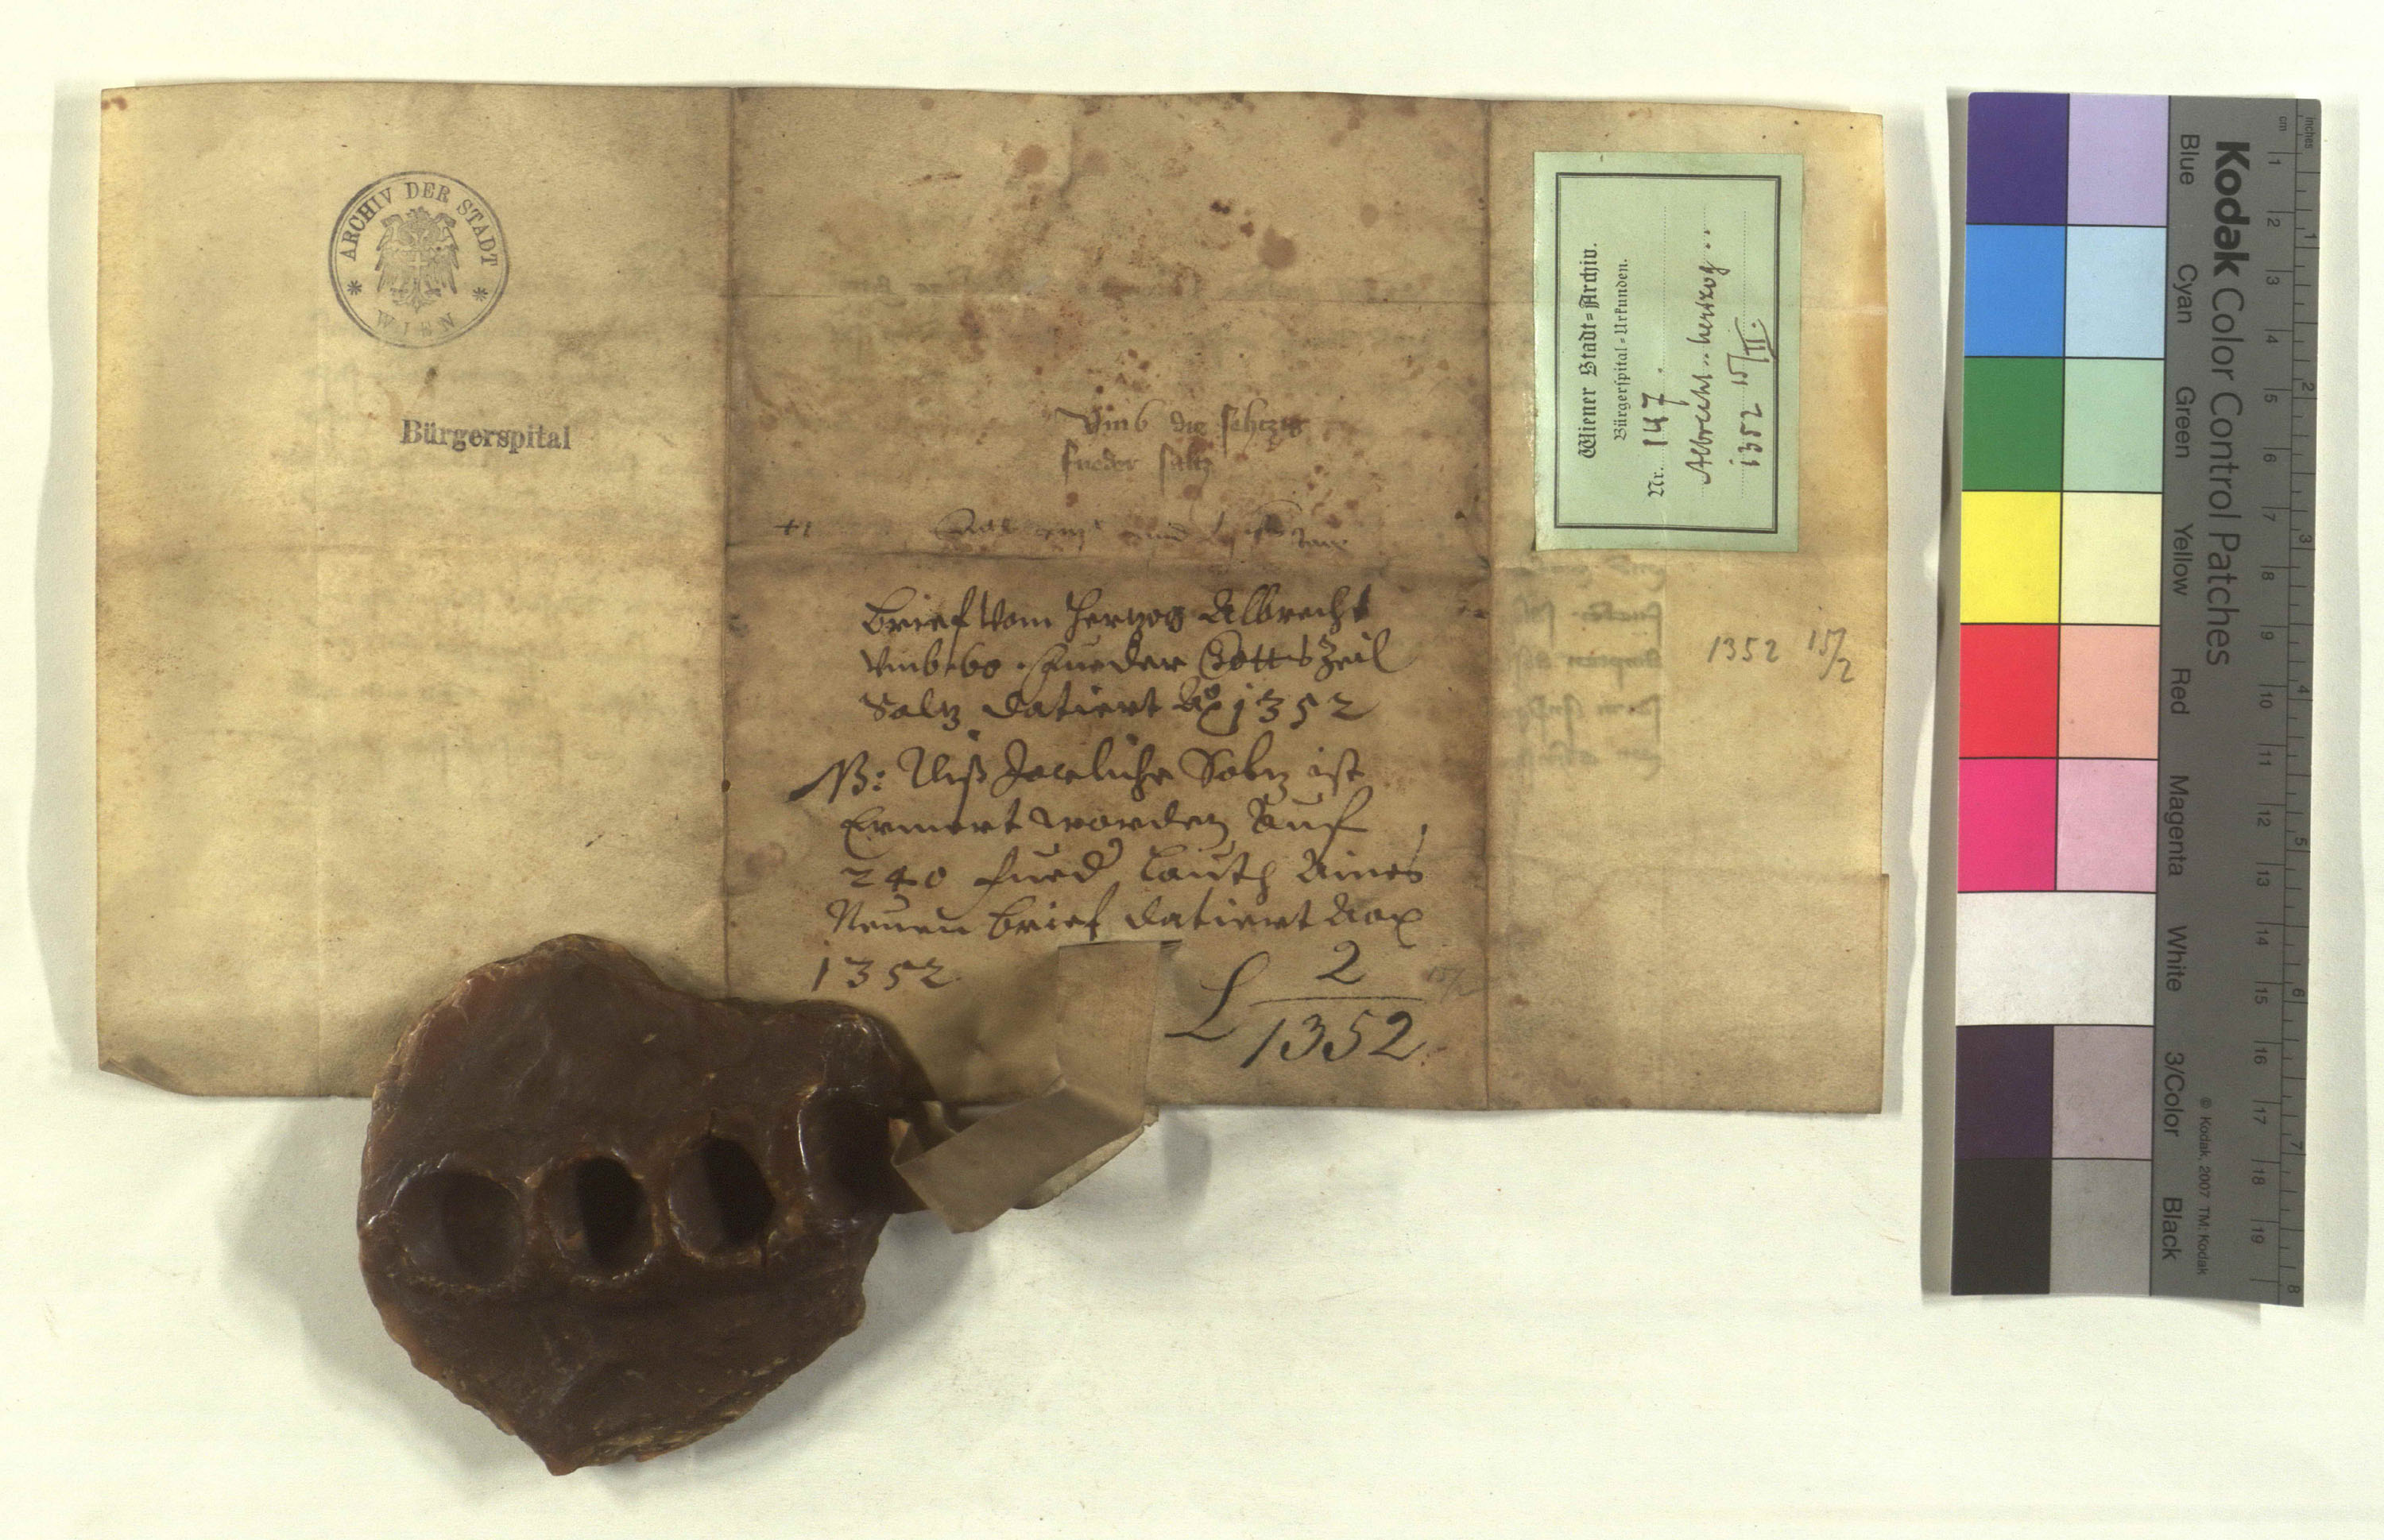 ARCHIV DER STADT
WIEN
Bürgerspital
Vmb die sehczig
fueder saltz
und
Brief vom Herzog Albrecht
vmb 60 Fueder Gotts Zeil
Saltz datiert Ao 1352
NB: Diß Jarliche Saltz ist
Ermert worden Auf
240 fued lauth Aines
Neuen brief datiert Ao
1352
L 2
1352
15/2
Wiener Stadt-Archiv.
Bürgerspital-Urkunden.
Nr. 147.
Albrecht herzog
1352 15/II.
1352 15/2
Kodak Color Control Patches
Blue Cyan Green Yellow Red Magenta White 3/Color Black
© Kodak, 2007 TM: Kodak
inches 1 2 3 4 5 6 7 8
cm 1 2 3 4 5 6 7 8 9 10 11 12 13 14 15 16 17 18 19